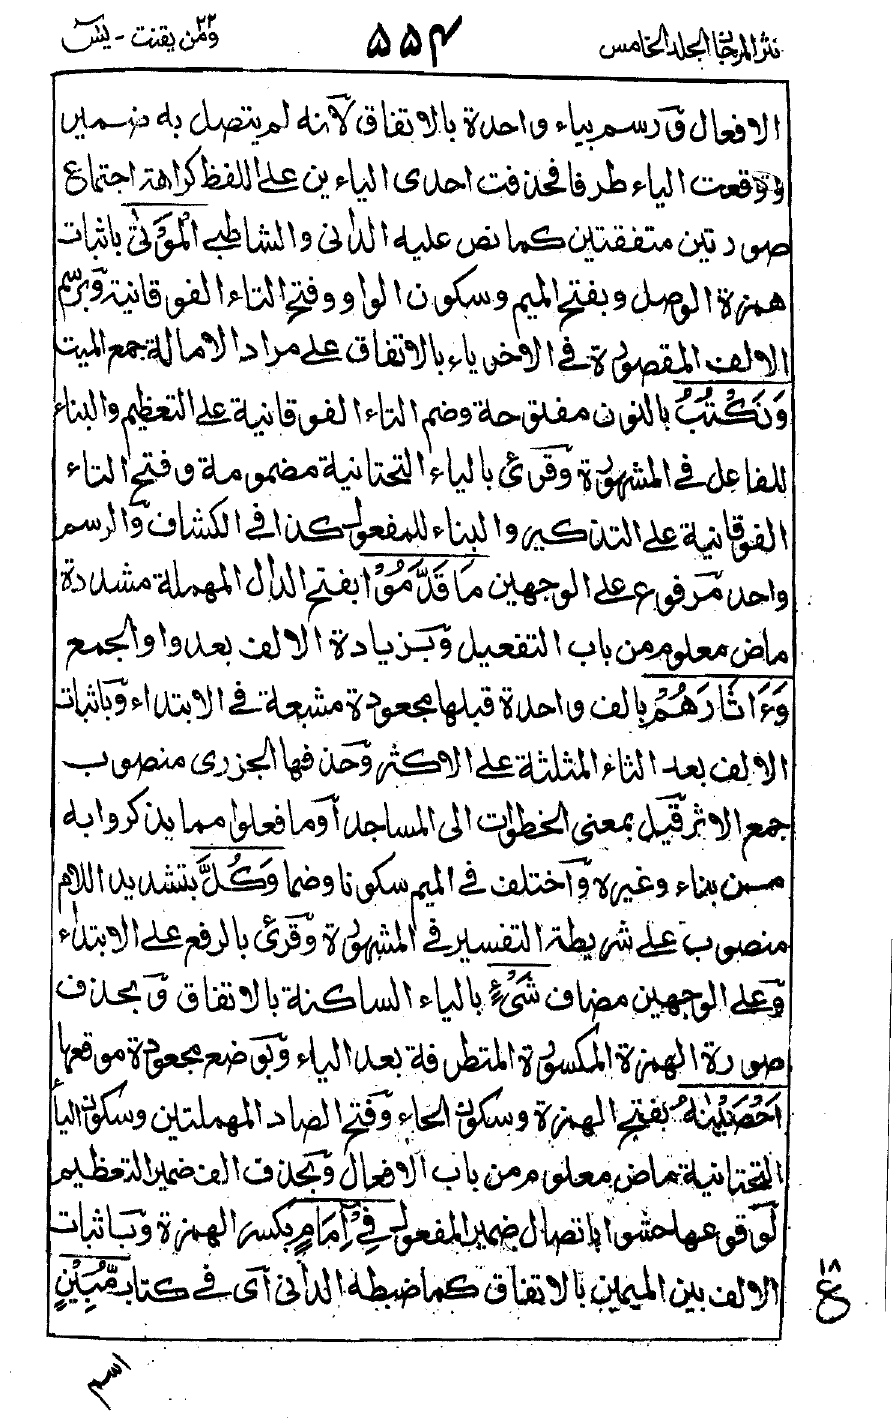 نثر المرجان المجلد الخامس
۵۵۴
ومن يقنت ۲۲ - يٰس
الافعال وَرسم بياء واحدة بالاتفاق لانه لم يتصل به ضمير
ووقعت الياء طرفا فحذفت احدى الياءين على اللفظ كراهة اجتماع
صورتين متفقتين كما نص عليه الدانى والشاطبى الْمَوْتٰى باثبات
همزة الوصل وبفتح الميم وسكون الواو وفتح التاء الفوقانية وَبرسم
الالف المقصورة فى الاخر ياء بالاتفاق على مراد الامالة جمع الميت
وَنَكْتُبُ بالنون مفتوحة وضم التاء الفوقانية على التعظيم والبناء
للفاعل فى المشهورة وَقرئ بالياء التحتانية مضمومة وفتح التاء
الفوقانية على التذكير والبناء للمفعول كذا فى الكشاف وَالرسم
واحد مَرفوع على الوجهين مَا قَدَّمُوْا بفتح الدال المهملة مشددة
ماض معلوم من باب التفعيل وَبزيادة الالف بعد واو الجمع
وَءَاثَارَهُمْ بالف واحدة قبلها مجعودة مشبعة فى الابتداء وَباثبات
الالف بعد الثاء المثلثة على الاكثر وَحذفها الجزرى منصوب
جمع الاثر قيل بمعنى الخطوات الى المساجد اَو ما فعلوا مما يذكروا به
مــن بناء وغيره وَاختلف فى الميم سكونا وضما وَكُلَّ بتشديد اللام
منصوب على شريطة التفسير فى المشهورة وَقرئ بالرفع على الابتداء
وَعلى الوجهين مضاف شَىْءٍ بالياء الساكنة بالاتفاق وَبحذف
صورة الهمزة المكسورة المتطرفة بعد الياء وَبوضع مجعودة موقعها
اَحْصَيْنٰهُ بفتح الهمزة وسكون الحاء وَفتح الصاد المهملتين وسكون الياء
التحتانية ماض معلوم من باب الافعال وَبحذف الف ضمير التعظيم
لوقوعها حشوا باتصال ضمير المفعول فِىْ اِمَامٍ بكسر الهمزة وَباثبات
الالف بين الميمين بالاتفاق كما ضبطه الدانى اَى فى كتاب مُّبِيْنٍ
۱۸
ع
اسم